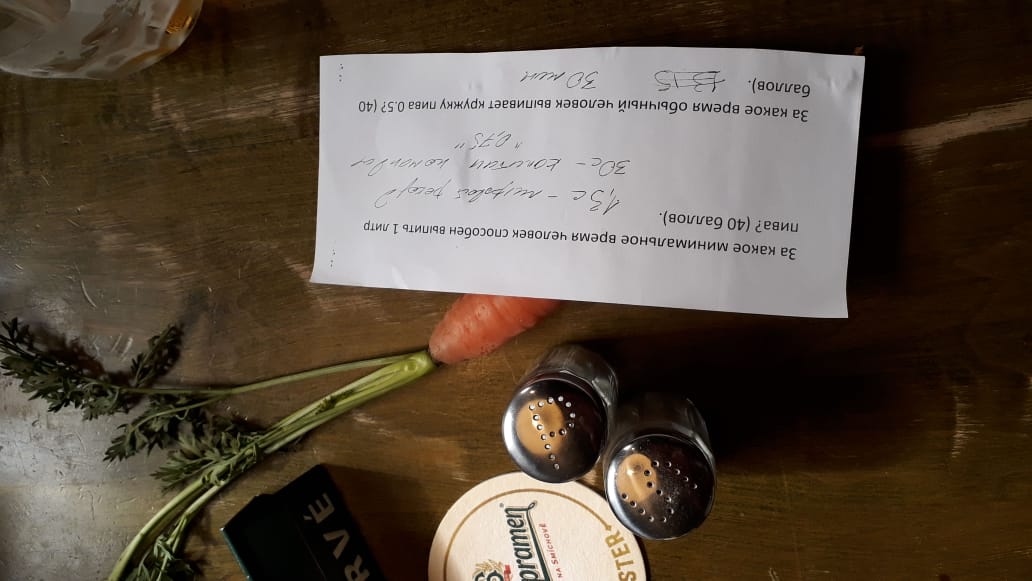 За какое минимальное время человек способен выпить 1 литр
пива? (40 баллов).
1,3 с - мировой рекорд
30 с - капитан команды
"0,75"
За какое время обычный человек выпивает кружку пива 0.5? (40
баллов).
30 мин
RVÉ
opramen
NA SMÍCHOVĚ
STER